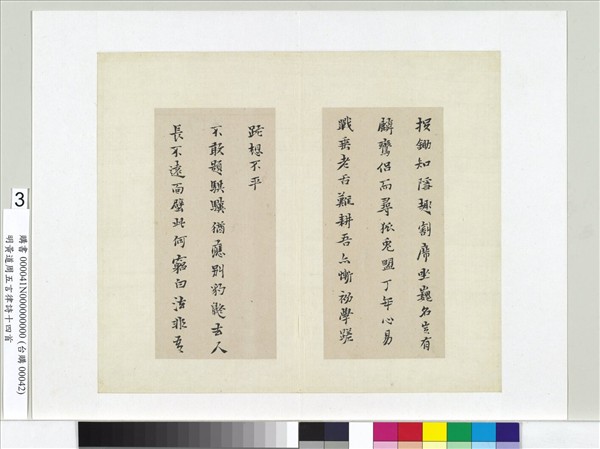 投鋤知隱趣割席坐巍名豈有
麟鸞侶而尋狐兔盟丁年心易
戰垂老舌難耕吾亦慚初學蹉
跎想不平
不敢題騏驥猶應別豹去人
長不遠面壁此何窮白法非吾
3
購書 000041N000000000 (台購 00042)
明黃道周五言律詩十四首